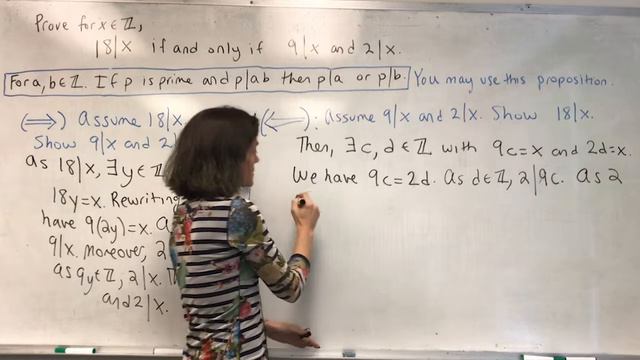 Prove for x ∈ ℤ,
18|x if and only if 9|x and 2|x.
For a, b ∈ ℤ. If p is prime and p|ab then p|a or p|b.
You may use this proposition.
(⟹) Assume 18|x.
Show 9|x and 2
as 18|x, ∃y ∈ ℤ
18y=x. Rewriting
have 9(2y)=x.
9|x. Moreover, 2
as 9y∈ℤ, 2|x.
and 2|x.
(⟸): Assume 9|x and 2|x. Show 18|x.
Then, ∃ c, d ∈ ℤ with 9c=x and 2d=x.
We have 9c=2d. As d∈ℤ, 2|9c. As 2